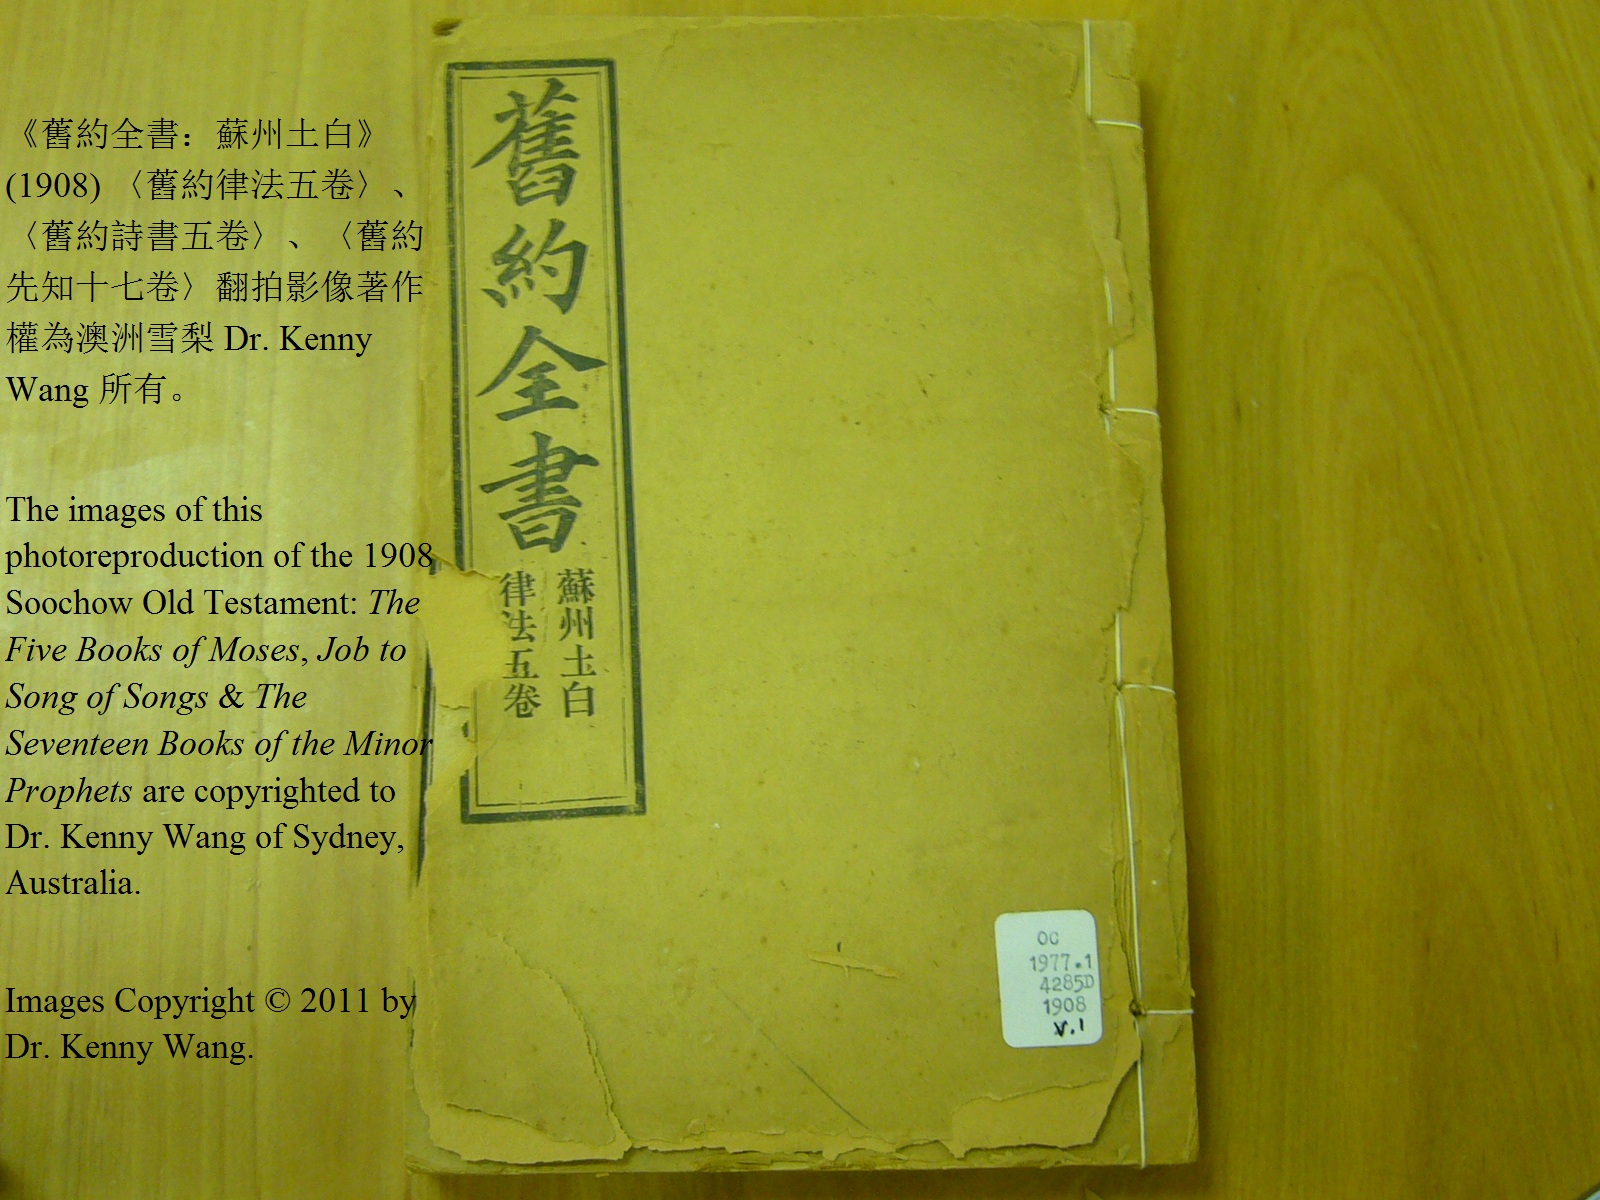 《舊約全書：蘇州土白》
(1908) 〈舊約律法五卷〉、
〈舊約詩書五卷〉、〈舊約
先知十七卷〉翻拍影像著作
權為澳洲雪梨 Dr. Kenny
Wang 所有。
The images of this
photoreproduction of the 1908
Soochow Old Testament: The
Five Books of Moses, Job to
Song of Songs & The
Seventeen Books of the Minor
Prophets are copyrighted to
Dr. Kenny Wang of Sydney,
Australia.
Images Copyright © 2011 by
Dr. Kenny Wang.
舊約全書
蘇州土白
律法五卷
OC
1977.1
4285D
1908
v.1